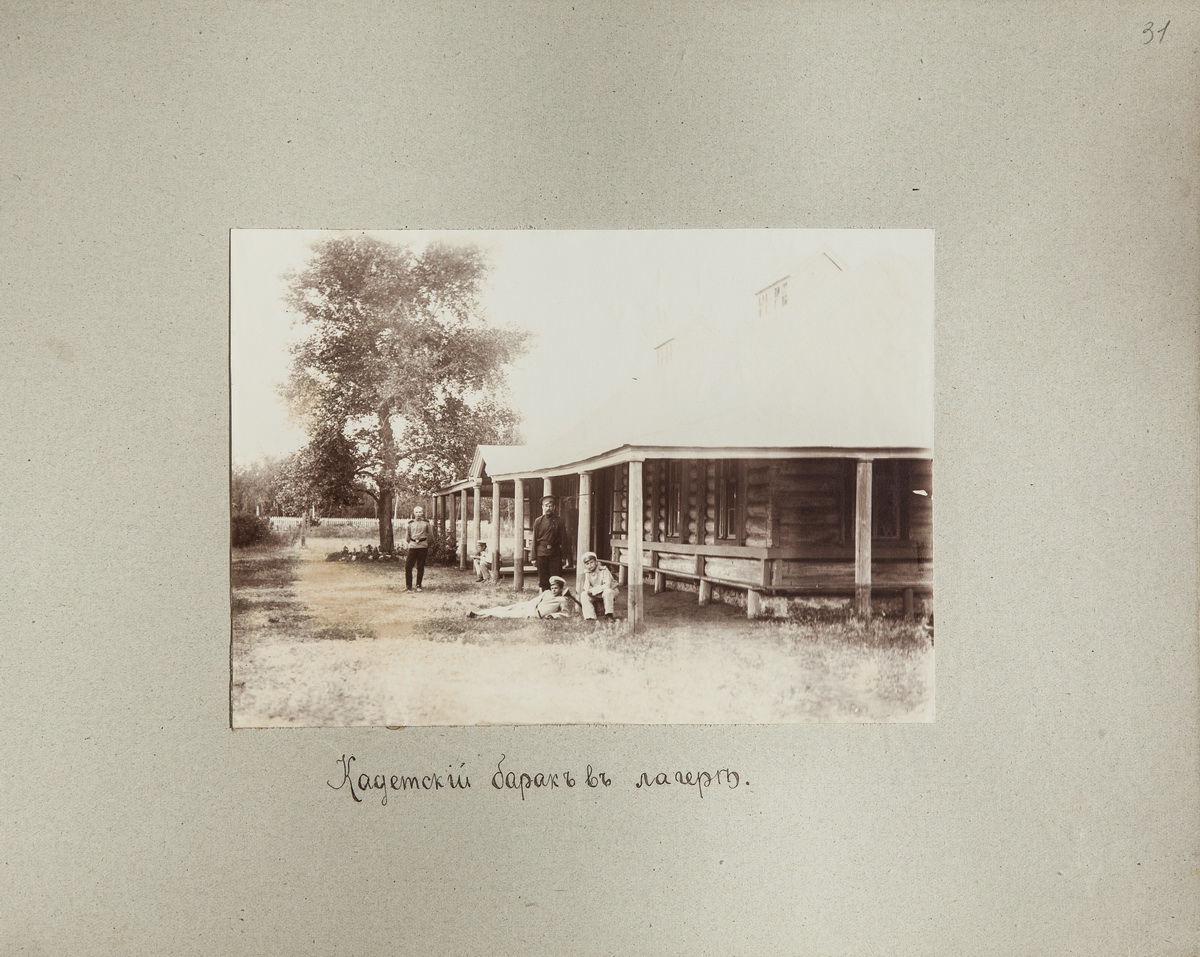 31
Кадетскій баракъ въ лагерѣ.